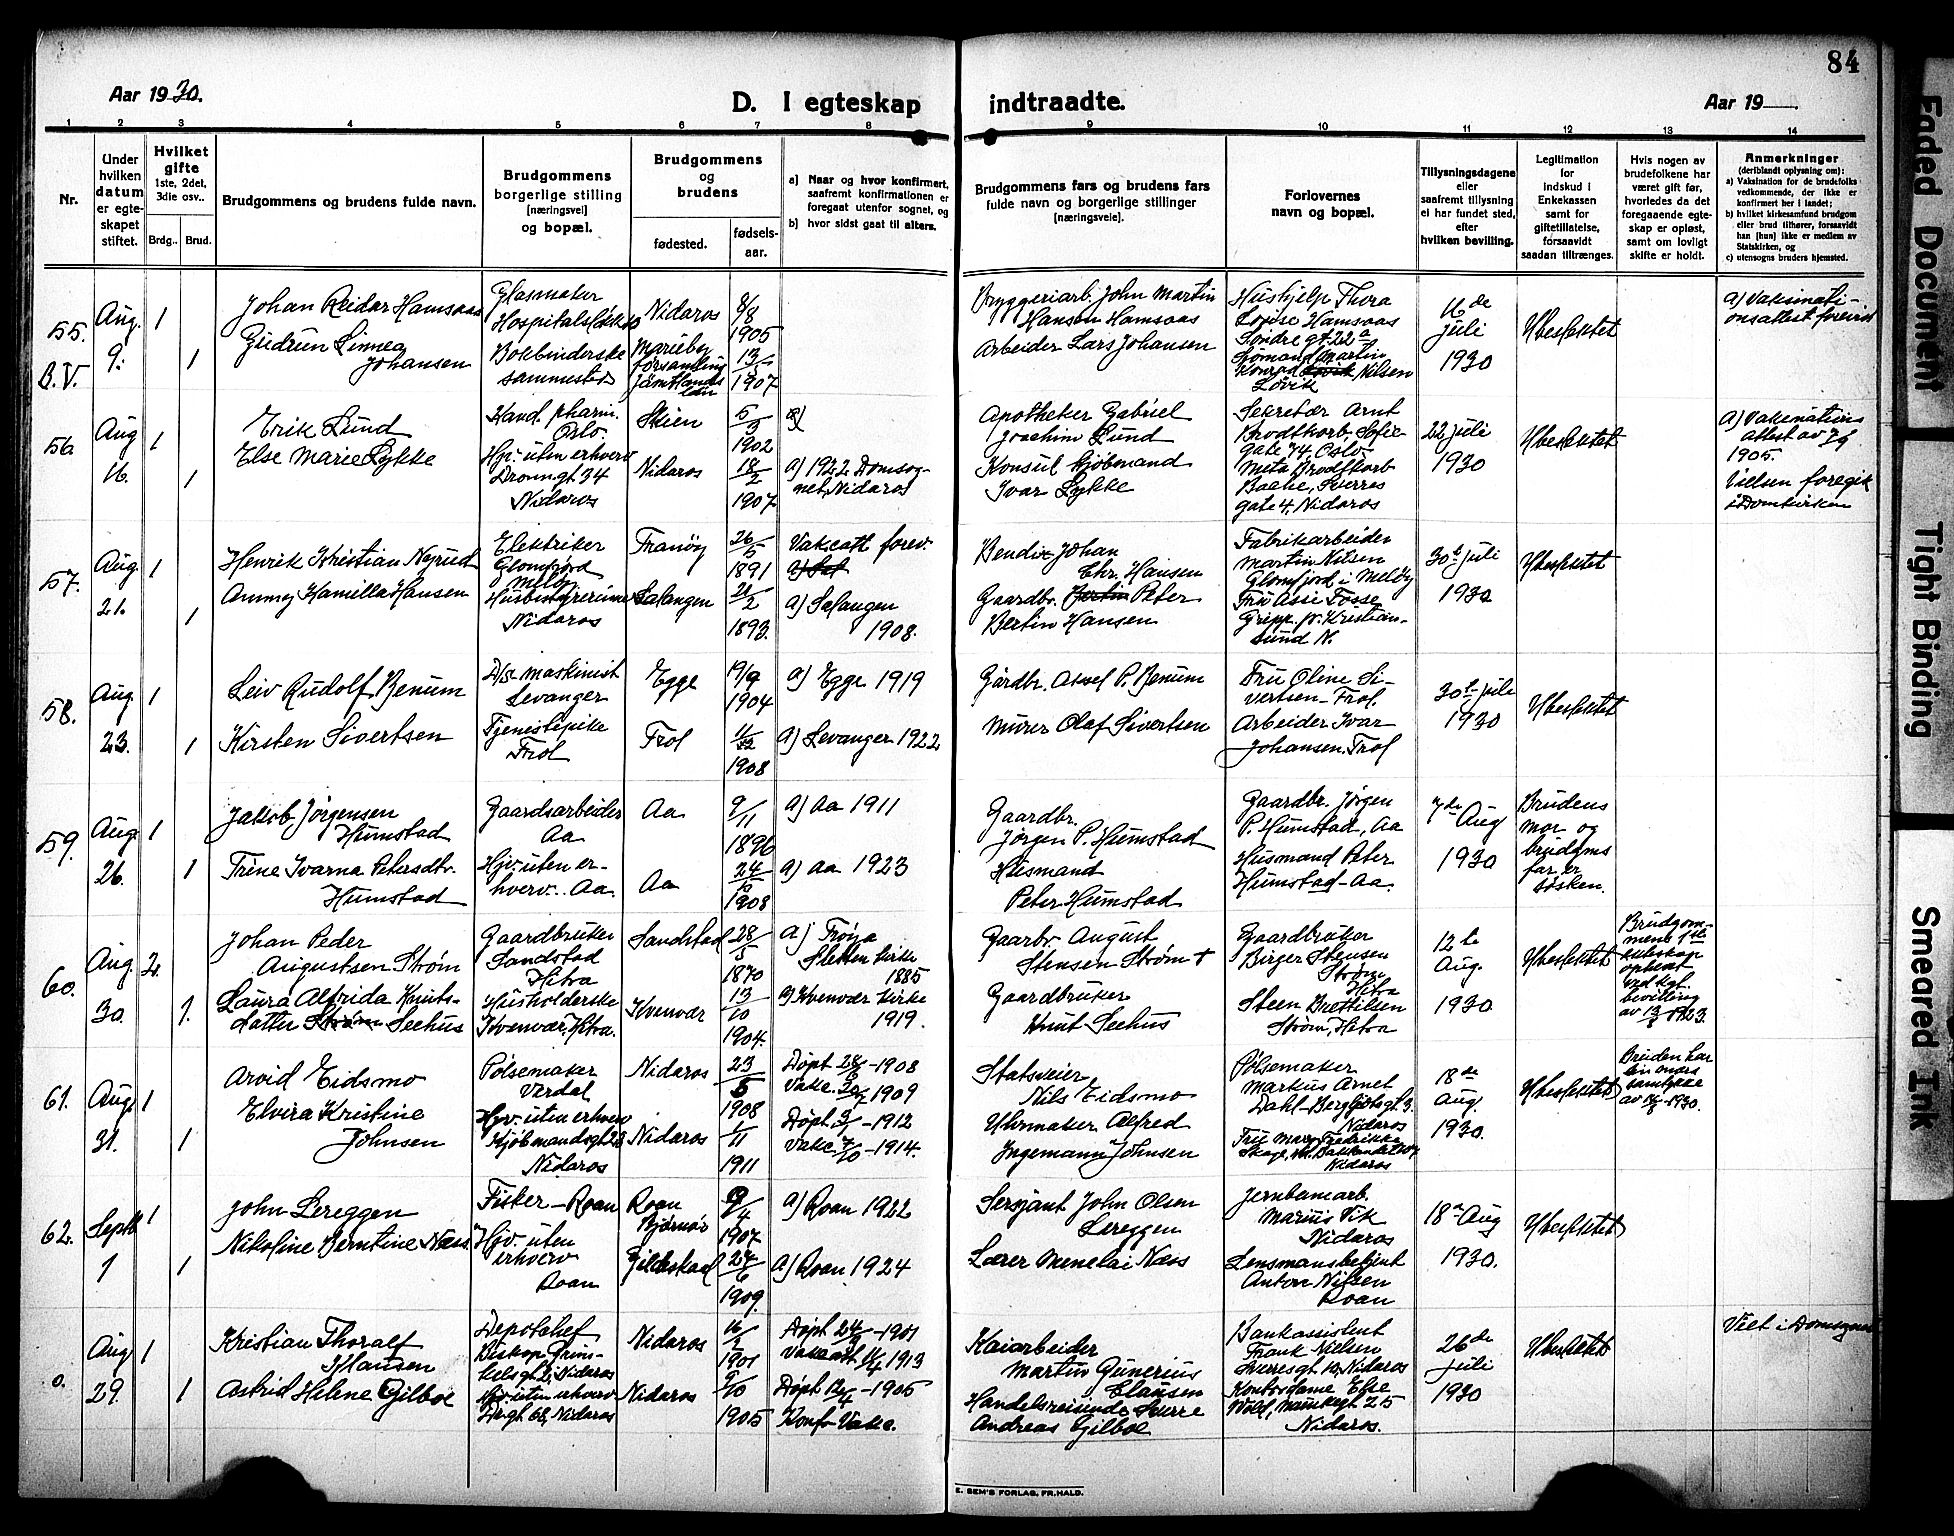 84
Aar 1930.
D. I egteskap indtraadte.
Aar 19
1 2 3 4 5 6 7 8 9 10 11 12 13 14
Nr.
Under hvilken datum er egteskapet stiftet.
Hvilket gifte
1ste, 2det, 3die osv..
Brdg.. Brud.
Brudgommens og brudens fulde navn.
Brudgommens borgerlige stilling
[næringsvei]
og bopæl.
Brudgommens og brudens
fødested.
fødsels-
aar.
a) Naar og hvor konfirmert, saafremt konfirmationen er foregaat utenfor sognet, og
b) hvor sidst gaat til alters.
Brudgommens fars og brudens fars fulde navn og borgerlige stillinger
[næringsveie].
Forlovernes
navn og bopæl.
Tillysningsdagene
eller
saafremt tillysning
ei har fundet sted,
efter
hvilken bevilling.
Legitimation
for
indskud i
Enkekassen
samt for
giftetillatelse,
forsaavidt
saadan tiltrænges.
Hvis nogen av
brudefolkene har
været gift før,
hvorledes da det
foregaaende egte-
skap er opløst,
samt om lovligt
skifte er holdt.
Anmerkninger
(deriblandt oplysning om):
a) Vaksination for de brudefolks
vedkommende, der ikke er
konfirmert her i landet;
b) hvilket kirkesamfund brudgom
eller brud tilhører, forsaavidt
han (hun) ikke er medlem av
Statskirken, og
c) utensogns bruders hjemsted.
55.
B.V.
Aug.
9.
1
1
Johan Reidar Hamsaas
Gudrun Linnea
Johansen
Glasmaker
Bokbinderske
sammesteds
Nidaros
Marieby
församling
Jämtlands
län
8/8
1905
13/
1907
Bryggeriarb. John Martin
Hansen Hamsaas
Arbeider Lars Johansen
Hushjelp Thora
Lovise Hamsaas
Søndre gt. 22a
Sjömand Martin
Konrad Lövik Nilsen
Lövik
16de
juli
1930
Ubeskettet
a) Vaksinati-
onsattest forevist
56
Aug
16.
1
1
Erik Lund
Else Marie Lykke
Kand. pharm.
Oslo
Hjv. uten erhverv
Dronngt 34
Nidaros
Skien
Nidaros
5/3
1902
18/2
1907
a)
a) 1922 Domsog-
net, Nidaros
Apotheker Gabriel
Joachim Lund
Konsul kjöbmand
Ivar Lykke
Sekretær Arnt
Brodtkorb Sofie-
gate 74, Oslo
Meta Brodtkorb
Bache, Sverres
gate 4, Nidaros
22 juli
1930
Ubeskettet
a) Vaksinations
attest av
1905.
Vielsen foregik
i Domkirken
57.
Aug
21.
1
1
Henrik Kristian Nyrud
Ammy Kamilla Hansen
Elektriker
Glomfjord
Melöy
Husbestyrerinne
Nidaros
Tranöy
Salangen
26/5
1891
21/2
1893.
Vakseatt forev.
a) Sal
a) Salangen
1908.
Bendix Johan
Chr. Hansen
Gaardbr. Peter
Bertin Hansen
Fabrikarbeider
Martin Nilsen
Glomfjord i Melöy
Fru Assi Fosse
Gripp. pr. Kristian-
sund N.
30te juli
1930
Ubeskettet
58.
Aug.
23.
1
1
Leiv Rudolf Benum
Kirsten Sivertsen
D/s. maskinist
Levanger
Tjenestepike
Frol
Egge
Frol
19/9
1904
11/12
1908
a) Egge 1919
a) Levanger 1922
Gårdbr. Axel P. Benum
Murer Olaf Sivertsen
Fru Oline Si-
vertsen - Frol.
Arbeider Ivar
Johansen, Frol
30te juli
1930
Ubeskettet
59.
Aug
26.
1
1
Jakob Jørgensen
Humstad
Trine Ivarna Petersdtr.
Humstad
Gaardsarbeider
Aa
Hjv. uten er-
hverv.. Aa.
Aa
Aa
9/11
1896
24/10
1908
a) Aa 1911
a) Aa 1923
Gaardbr.
Jørgen P. Humstad
Husmand
Peter Humstad
Gaardbr. Jørgen
P. Humstad, Aa
Husmand Peter
Humstad - Aa.
7de Aug
1930
Brudens
mor og
brudgms
far er
søsken.
60.
Aug.
30.
2.
1.
Johan Peder
Augustsen Strøm
Laura Alfrida Knuts-
datter Strøm Seehus
Gaardbruker
Sandstad
Hitra
Husholderske
Kvenvær, Hitra.
Sandstad
Kvenvær
28/5
1870
13/10
1904.
a) Frøya
Sletten kirke
1885
a) Kvenvær kirke
1919.
Gaarbr. August
Stensen Strøm +
Gaardbruker
Knut Seehus
Gaardbruker
Birger Stensen
Strøm
Hitra
Steen Brettilsen
Strøm, Hitra
12te
Aug.
1930
Ubeskettet
Brudgom-
mens 1ste
ekteskap
ophevet
ved kgl.
bevilling
av 13/8 1923.
61.
Aug.
31.
1
1
Arvid Eidsmo
Elvira Kristine
Johnsen
Pølsemaker
Verdal
Hjv. uten erhverv
Kjöbmandsgt 28
Nidaros
Nidaros
Nidaros
23/5
1908
1/11
1911
Døpt 28/6 - 1908
- 1909
Døpt 3/ - 1912
Vaks. 7/10 - 1914.
Statsveier
Nils Eidsmo
Uhrmaker Alfred
Ingemann Johnsen
Pølsemaker
Markus Arnet
Dahl - Bergljotsgt. 3.
Nidaros
Fru Mary Fredrikke
Nidaros
18de
Aug.
1930.
Ubeskettet
Bruden har
sin mors
samtykke
av 14/8 - 1930.
62.
Septb
1
1
1
John Lereggen
Nikoline Berntine Næss
Fisker - Roan
Hjv. uten
erhverv
Roan
Roan
Bjørnör
Gildeskaal
9/4
1907
24/6
1909.
a) Roan 1922
a) Roan 1924
Sersjant John Olsen
Lereggen
Lærer Menelai Næss
Jernbanearb.
Marius Vik
Nidaros
Lensmansbetjent
Anton Nilsen
Roan
18de Aug
1930.
Ubeskettet
0.
Aug
29.
1
1
Kristian Thoralf
Klausen
Astrid Helene Gilboe
Depotchef
Biskop Grim-
kelsgt 2, Nidaros
Hjv. uten erhverv
Drgt 68, Nidaros
Nidaros
Nidaros
16/2
1901
9/10
1905
Døpt 24/ - 1901
Vaksatt 1913
Døpt - 1905
Konf. Vaks.
Kaiarbeider
Martin Gunerius
Clausen
Handelsreisende Sverre
Andreas Gilboe
Bankassistent
Frank Nielsen
Sverresgt 10, Nidaros
Kontordame Else
Wold, Munkegt 25
Nidaros.
26de
juli
1930
Ubeskettet
Viet i Domsognet
E. SEM'S FORLAG, FR.HALD.
Faded Document
Tight Binding
Smeared Ink